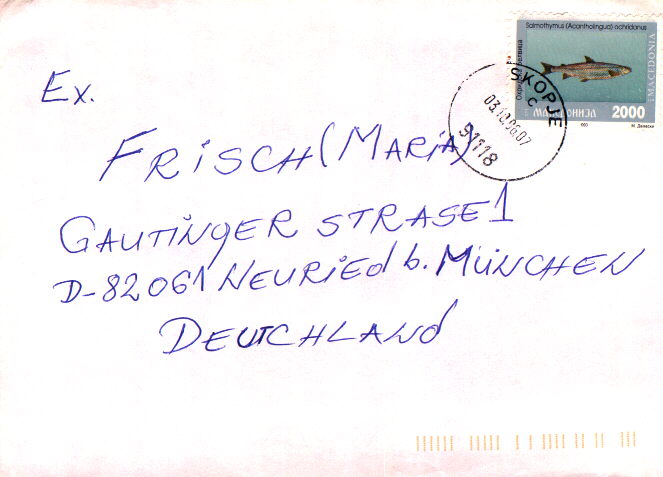 Salmothymus (Acantholingua) ochridanus
MACEDONIA
2000
М. Дамески
SKOPJE
C
03.10.96.07
91118
Ex.
FRiSCH (MARiA)
GAUTiNGER STRASE 1
D-82061 NEURiEd b. MÜNCHEN
DEUTCHLANd